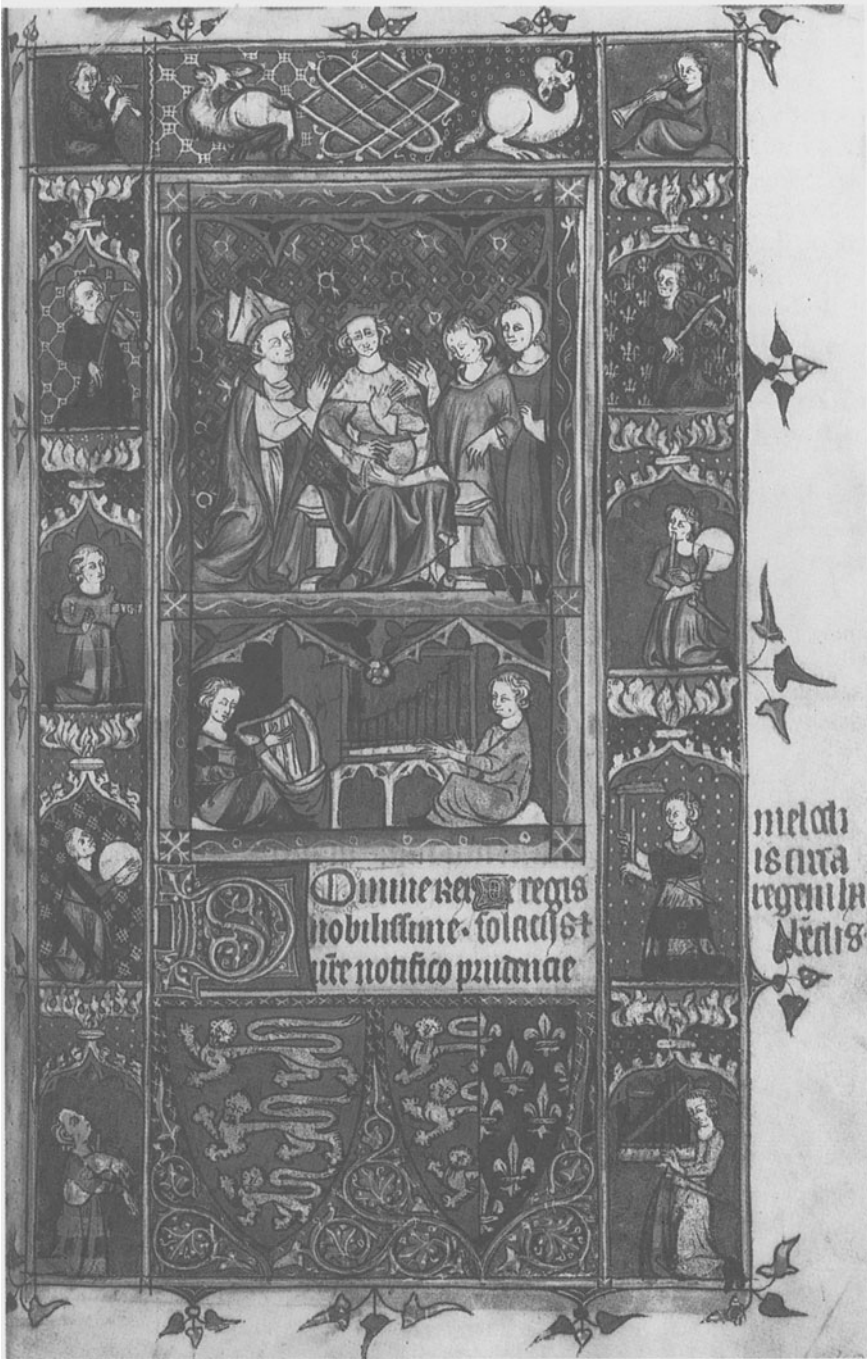 DOmine rex De regis
nobilissime. solacijs &
ūre notifico prudencie
melodi
is circa
regem ha